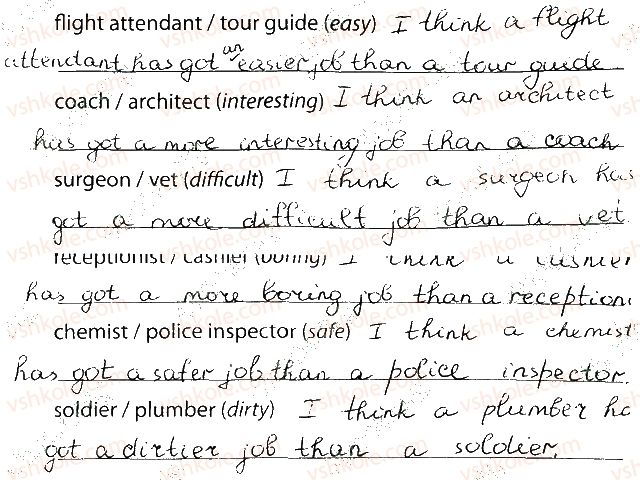 flight attendant / tour guide (easy) I think a flight
attendant has got an easier job than a tour guide
coach / architect (interesting) I think an architect
has got a more interesting job than a coach
surgeon / vet (difficult) I think a surgeon has
got a more difficult job than a vet
receptionist / cashier (boring) I think a cashier
has got a more boring job than a reception
chemist / police inspector (safe) I think a chemist
has got a safer job than a police inspector.
soldier / plumber (dirty) I think a plumber ha
got a dirtier job than a soldier.